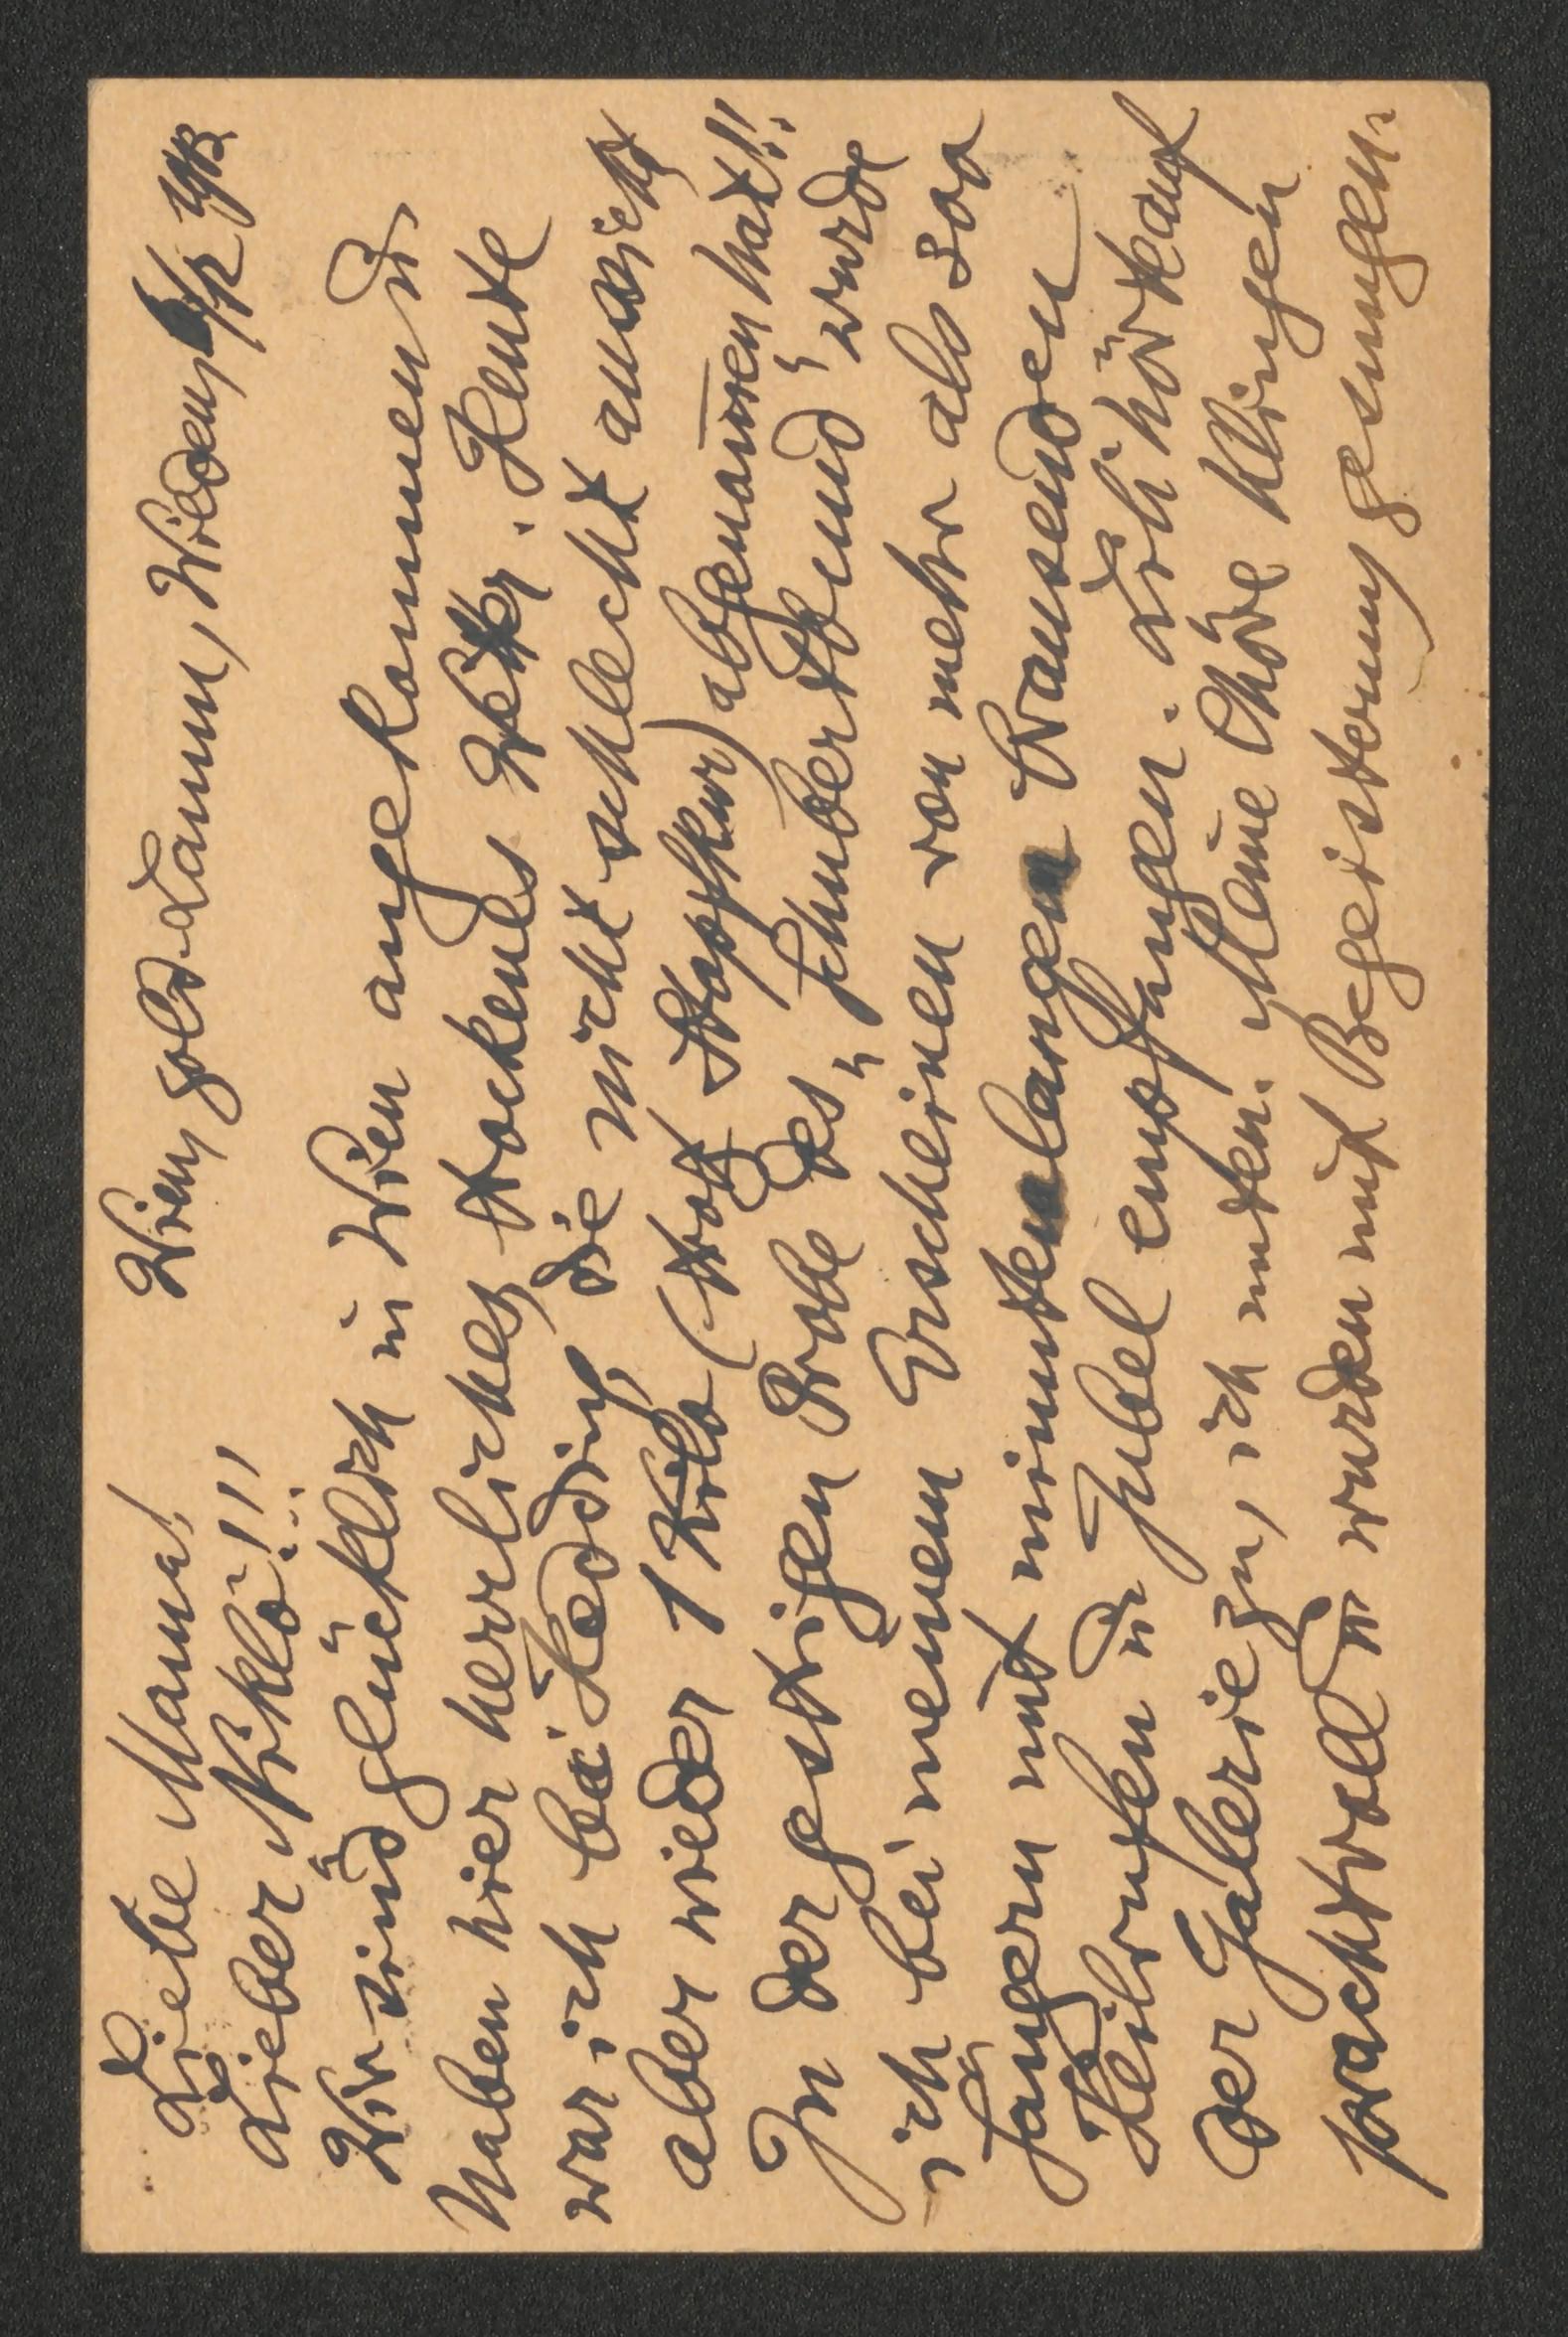 Wien, gold. Lamm, Wieden, 6/12 1913
Liebe Mama!
Lieber Niklo!!!
Wir sind glücklich in Wien angekommen u.
haben hier herrliches, trockenes Wetter. Heute
war ich bei Hedding, die nicht schlecht aussieht,
aber wieder 1 Kilo (trotz Stopfkur) abgenommen hat!!
In der gestrigen Probe des „Schubertbund“ wurde
ich bei meinem Erscheinen von mehr als 300
Sängern mit minutenlangen brausenden
Heilrufen u. Jubel empfangen. Lili hörte auf
der Galerie zu, ich unten. Meine Chöre klingen
prachtvoll u. wurden mit Begeisterung gesungen.